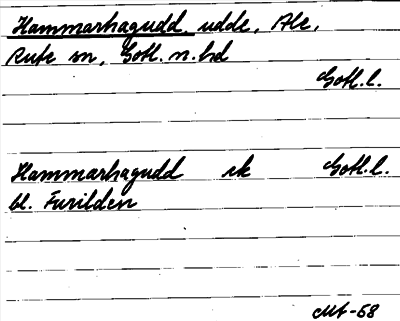 Hammarhagudd, udde, Ale,
Rute sn, Gotl. n. hd
Gotl. l.
Hammarhagudd ek Gotl. l.
bl. Furilden
Mt-58